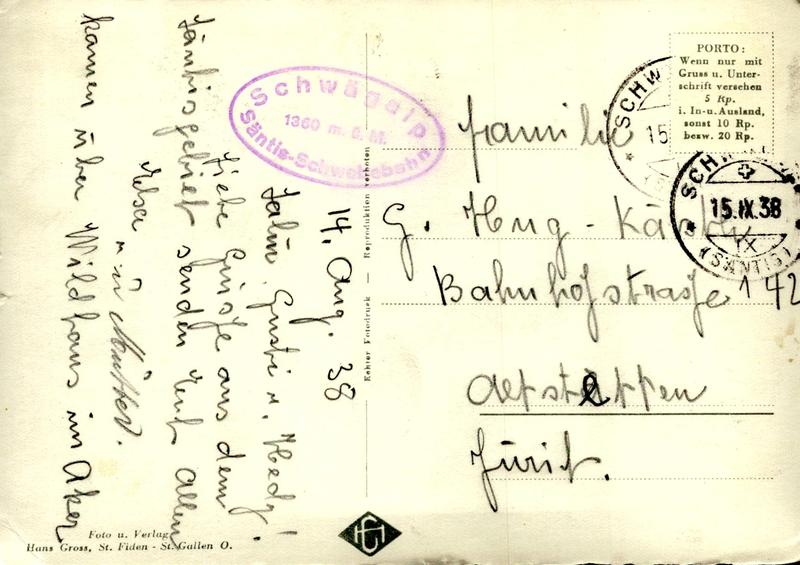 14. Aug. 38
Gusti u. Hedy!
Liebe Grüsse aus dem
Säntisgebiet senden Euch allen
Elsa u. Mutter.
kamen über Wildhaus im
Schwägalp
1360 m. ü. M.
Säntis-Schwebebahn
Echter Fotodruck — Reproduktion verboten
PORTO:
Wenn nur mit
Gruss u. Unter-
schrift versehen
5 Rp.
i. In- u. Ausland,
sonst 10 Rp.
bezw. 20 Rp.
SCHW
15
SCHW
15.IX.38
IX
(SÄNTIS)
Familie
G. Hug-
Bahnhofstrasse 142
Altstetten
Zürich.
Foto u. Verlag
Hans Gross, St. Fiden - St. Gallen O.
HG